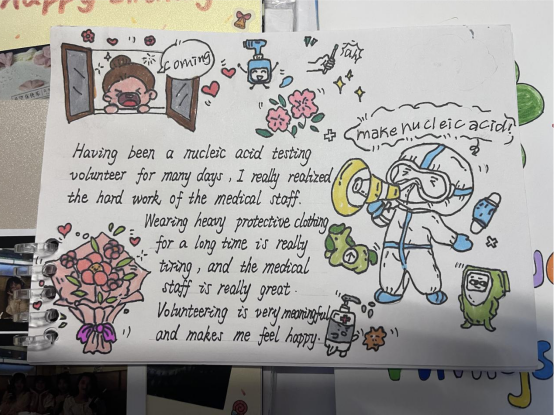 Happy Birthday
coming
make nucleic acid!
Having been a nucleic acid testing
volunteer for many days, I really realized
the hard work of the medical staff.
Wearing heavy protective clothing
for a long time is really
tiring, and the medical
staff is really great.
Volunteering is very meaningful
and makes me feel happy.